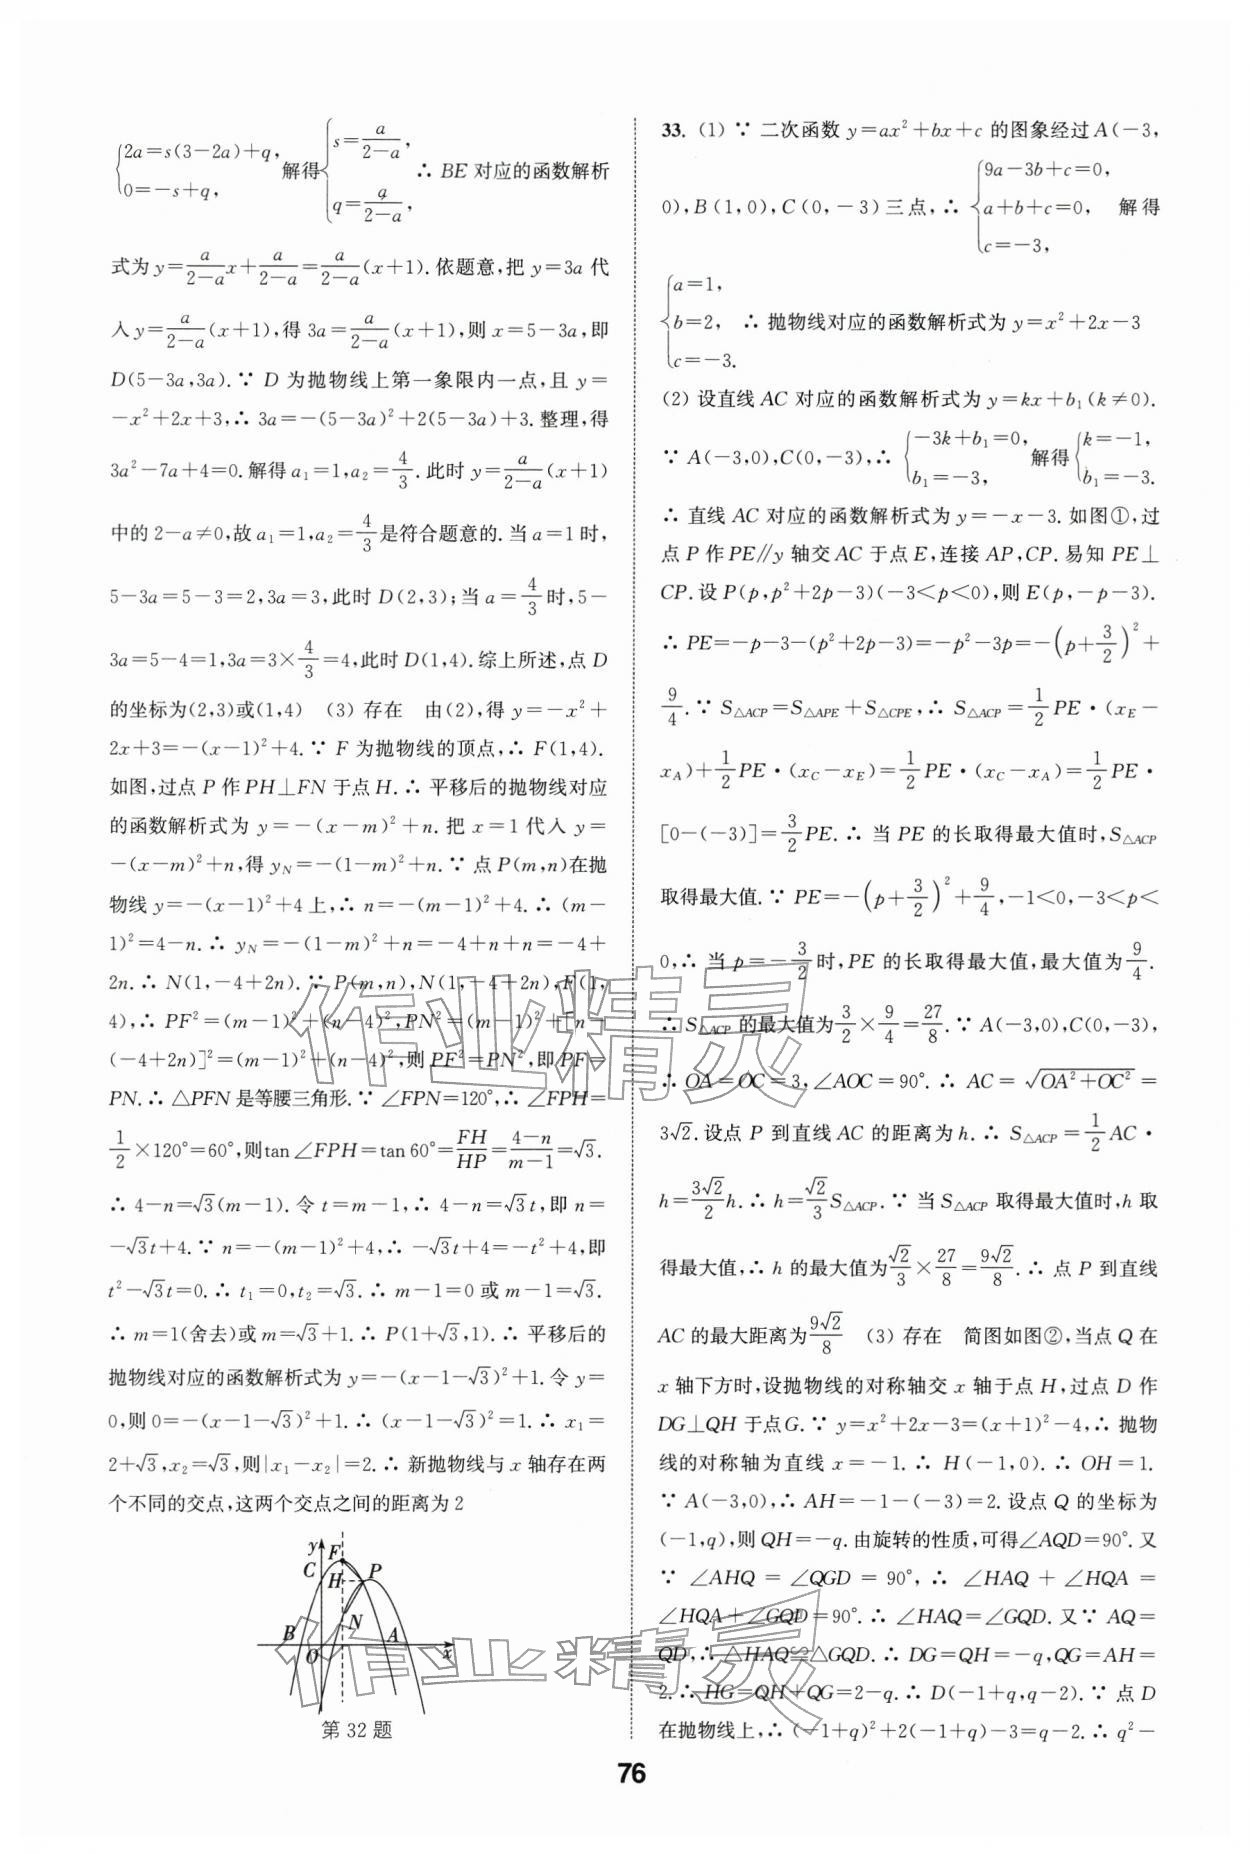 {2a=s(3-2a)+q, 0=-s+q, 解得{s=a/(2-a), q=a/(2-a), ∴ BE 对应的函数解析
式为 y=a/(2-a)x+a/(2-a)=a/(2-a)(x+1). 依题意,把 y=3a 代
入 y=a/(2-a)(x+1),得 3a=a/(2-a)(x+1),则 x=5-3a,即
D(5-3a,3a). ∵ D 为抛物线上第一象限内一点,且 y=
-x²+2x+3,∴ 3a=-(5-3a)²+2(5-3a)+3. 整理,得
3a²-7a+4=0. 解得 a₁=1,a₂=4/3. 此时 y=a/(2-a)(x+1)
中的 2-a≠0,故 a₁=1,a₂=4/3是符合题意的. 当 a=1 时,
5-3a=5-3=2,3a=3,此时 D(2,3);当 a=4/3时,5-
3a=5-4=1,3a=3×4/3=4,此时 D(1,4). 综上所述,点 D
的坐标为(2,3)或(1,4) (3) 存在 由(2),得 y=-x²+
2x+3=-(x-1)²+4. ∵ F 为抛物线的顶点,∴ F(1,4).
如图,过点 P 作 PH⊥FN 于点 H. ∴ 平移后的抛物线对应
的函数解析式为 y=-(x-m)²+n. 把 x=1 代入 y=
-(x-m)²+n,得 y_N=-(1-m)²+n. ∵ 点 P(m,n)在抛
物线 y=-(x-1)²+4 上,∴ n=-(m-1)²+4. ∴ (m-
1)²=4-n. ∴ y_N=-(1-m)²+n=-4+n+n=-4+
2n. ∴ N(1,-4+2n). ∵ P(m,n),N(1,-4+2n),F(1,
4),∴ PF²=(m-1)²+(n-4)²,PN²=(m-1)²+[n-
(-4+2n)]²=(m-1)²+(n-4)²,则 PF²=PN²,即 PF=
PN. ∴ △PFN 是等腰三角形. ∵ ∠FPN=120°,∴ ∠FPH=
1/2×120°=60°,则tan∠FPH=tan 60°=FH/HP=(4-n)/(m-1)=√3.
∴ 4-n=√3(m-1). 令 t=m-1,∴ 4-n=√3t,即 n=
-√3t+4. ∵ n=-(m-1)²+4,∴ -√3t+4=-t²+4,即
t²-√3t=0. ∴ t₁=0,t₂=√3. ∴ m-1=0 或 m-1=√3.
∴ m=1(舍去)或 m=√3+1. ∴ P(1+√3,1). ∴ 平移后的
抛物线对应的函数解析式为 y=-(x-1-√3)²+1. 令 y=
0,则 0=-(x-1-√3)²+1. ∴ (x-1-√3)²=1. ∴ x₁=
2+√3,x₂=√3,则|x₁-x₂|=2. ∴ 新抛物线与 x 轴存在两
个不同的交点,这两个交点之间的距离为 2
y F C H P N B O A x
第 32 题
33. (1) ∵ 二次函数 y=ax²+bx+c 的图象经过 A(-3,
0),B(1,0),C(0,-3)三点,∴ {9a-3b+c=0, a+b+c=0, c=-3, 解得
{a=1, b=2, c=-3. ∴ 抛物线对应的函数解析式为 y=x²+2x-3
(2) 设直线 AC 对应的函数解析式为 y=kx+b₁(k≠0).
∵ A(-3,0),C(0,-3),∴ {-3k+b₁=0, b₁=-3, 解得{k=-1, b₁=-3.
∴ 直线 AC 对应的函数解析式为 y=-x-3. 如图①,过
点 P 作 PE∥y 轴交 AC 于点 E,连接 AP,CP. 易知 PE⊥
CP. 设 P(p,p²+2p-3)(-3<p<0),则 E(p,-p-3).
∴ PE=-p-3-(p²+2p-3)=-p²-3p=-(p+3/2)²+
9/4. ∵ S△ACP=S△APE+S△CPE,∴ S△ACP=1/2PE·(x_E-
x_A)+1/2PE·(x_C-x_E)=1/2PE·(x_C-x_A)=1/2PE·
[0-(-3)]=3/2PE. ∴ 当 PE 的长取得最大值时,S△ACP
取得最大值. ∵ PE=-(p+3/2)²+9/4,-1<0,-3<p<
0,∴ 当 p=-3/2时,PE 的长取得最大值,最大值为9/4.
∴ S△ACP 的最大值为3/2×9/4=27/8. ∵ A(-3,0),C(0,-3),
∴ OA=OC=3,∠AOC=90°. ∴ AC=√(OA²+OC²)=
3√2. 设点 P 到直线 AC 的距离为 h. ∴ S△ACP=1/2AC·
h=3√2/2h. ∴ h=√2/3S△ACP. ∵ 当 S△ACP 取得最大值时,h 取
得最大值,∴ h 的最大值为√2/3×27/8=9√2/8. ∴ 点 P 到直线
AC 的最大距离为9√2/8 (3) 存在 简图如图②,当点 Q 在
x 轴下方时,设抛物线的对称轴交 x 轴于点 H,过点 D 作
DG⊥QH 于点G. ∵ y=x²+2x-3=(x+1)²-4,∴ 抛物
线的对称轴为直线 x=-1. ∴ H(-1,0). ∴ OH=1.
∵ A(-3,0),∴ AH=-1-(-3)=2. 设点 Q 的坐标为
(-1,q),则 QH=-q. 由旋转的性质,可得∠AQD=90°. 又
∵ ∠AHQ=∠QGD=90°,∴ ∠HAQ+∠HQA=
∠HQA+∠GQD=90°. ∴ ∠HAQ=∠GQD. 又∵ AQ=
QD,∴ △HAQ≌△GQD. ∴ DG=QH=-q,QG=AH=
2. ∴ HG=QH+QG=2-q. ∴ D(-1+q,q-2). ∵ 点 D
在抛物线上,∴ (-1+q)²+2(-1+q)-3=q-2. ∴ q²-
76
作业精灵
作业精灵